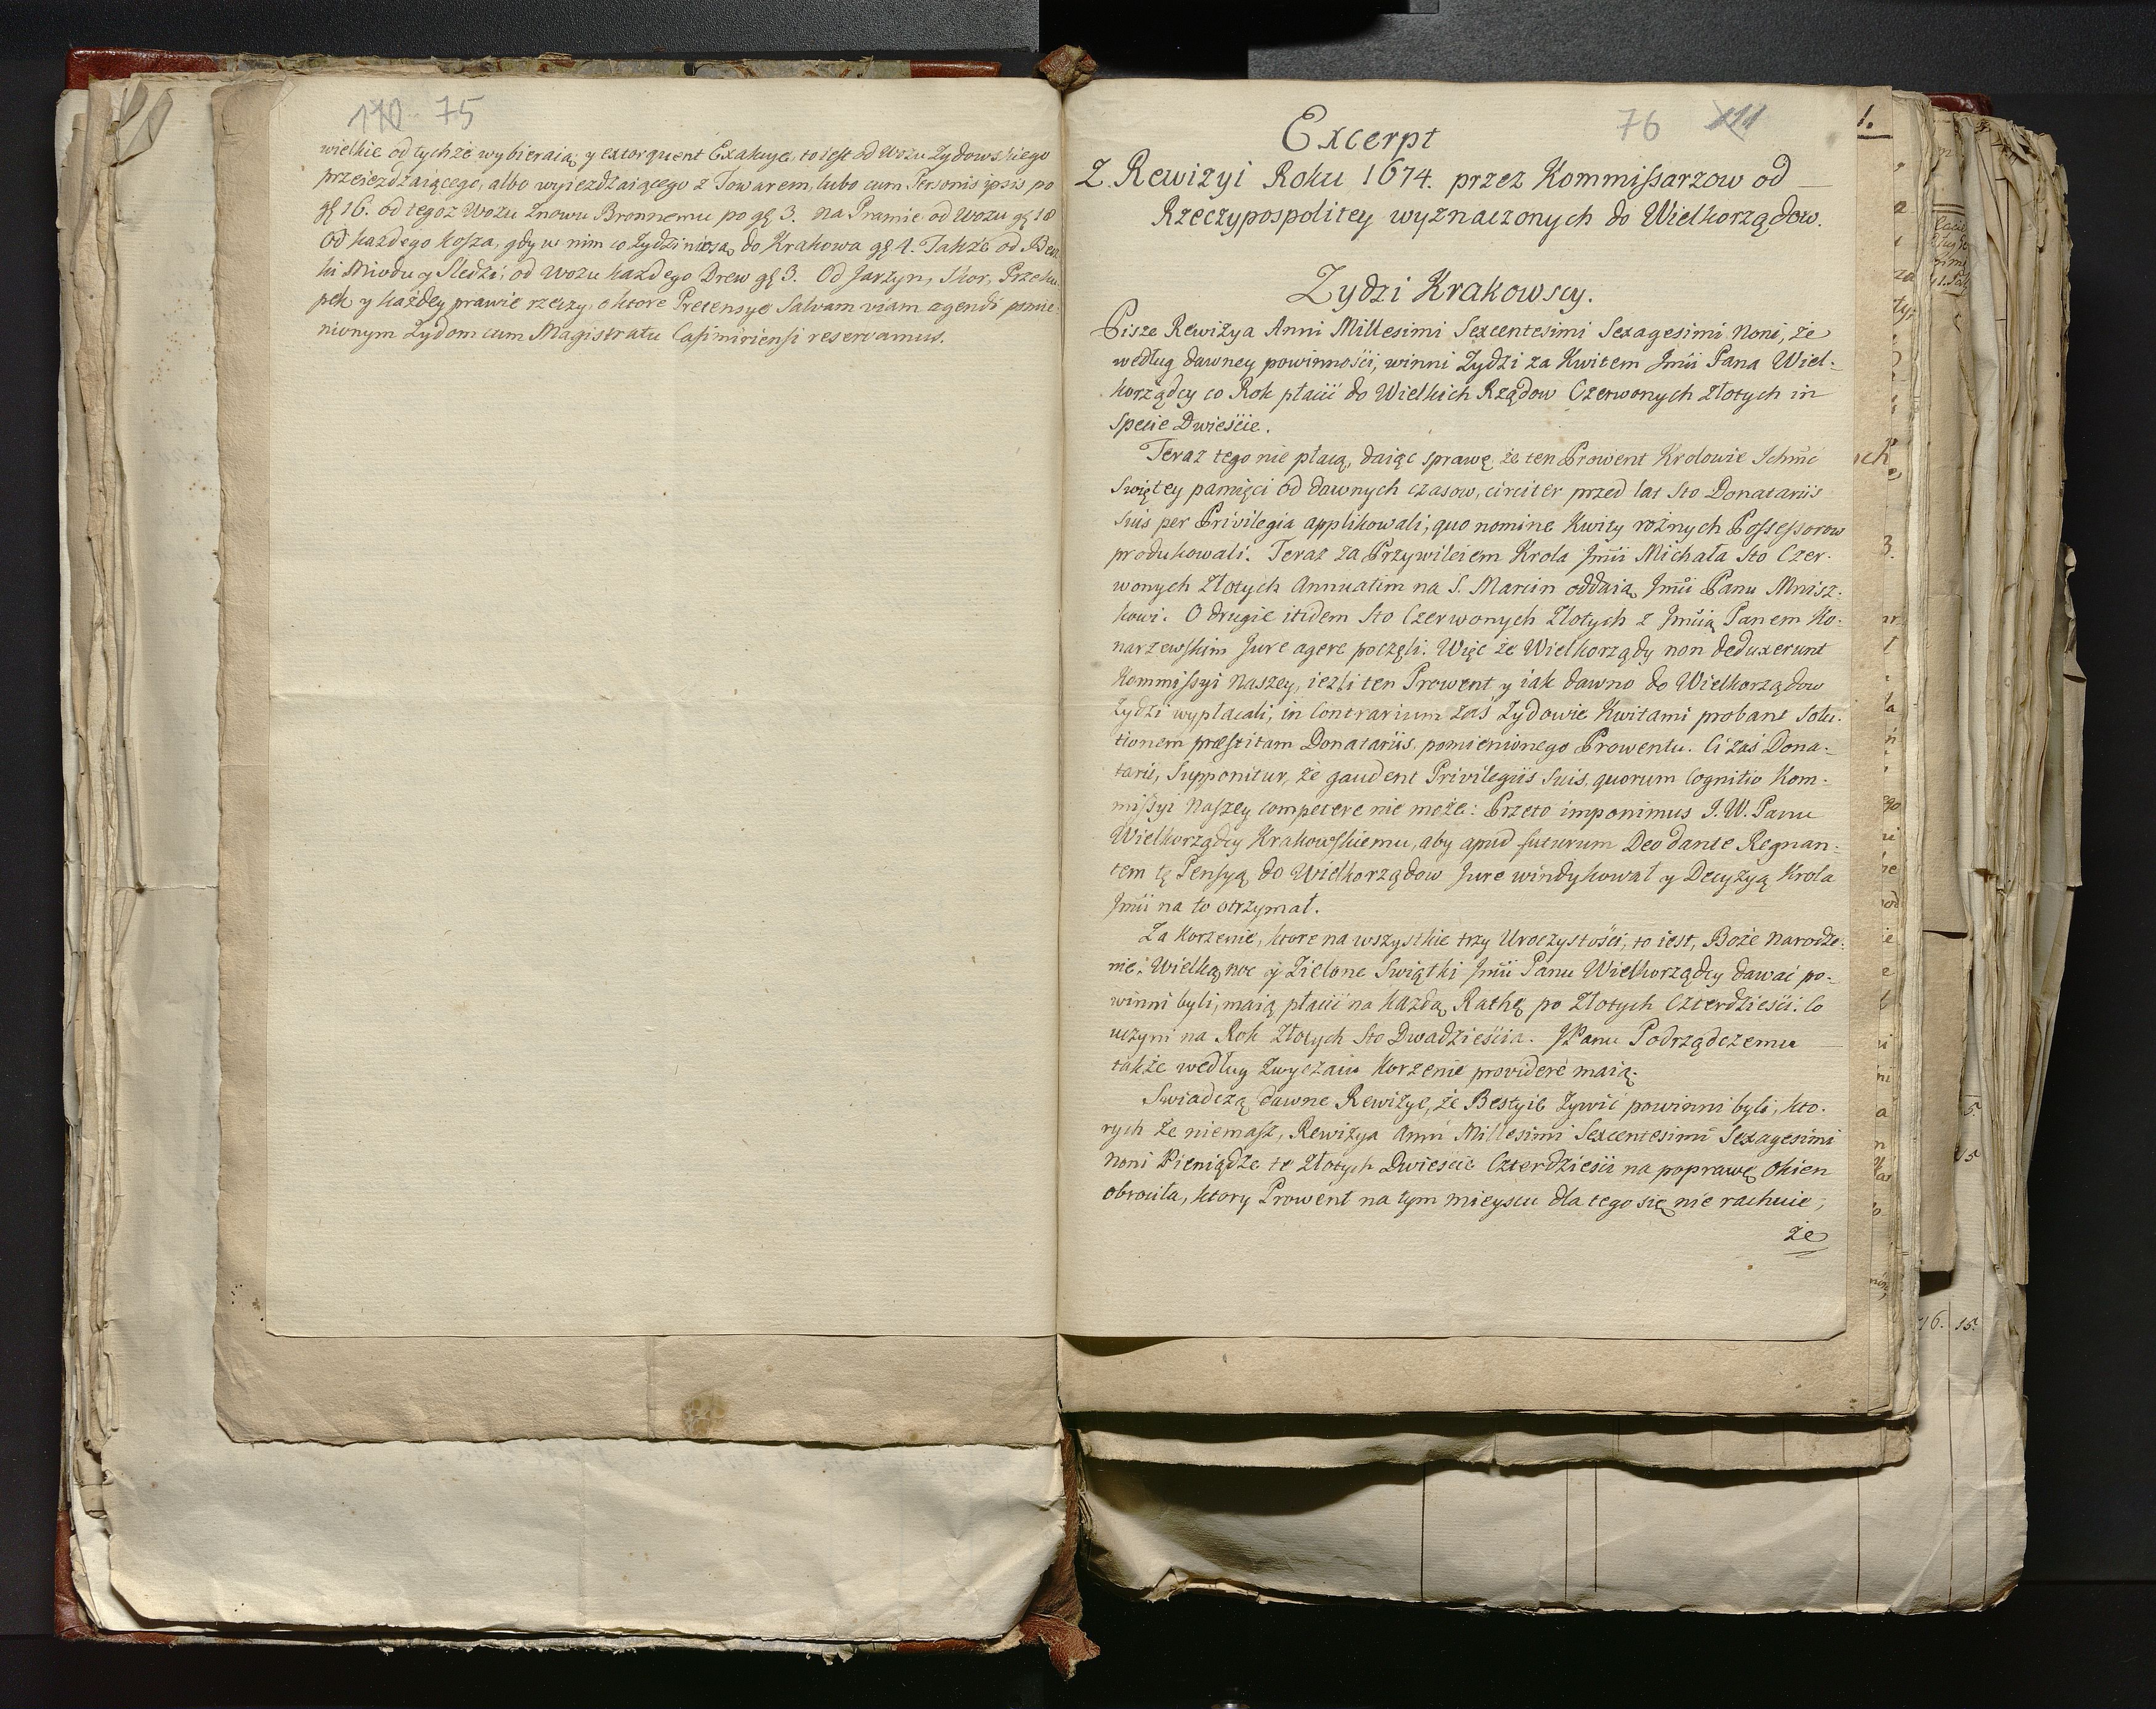 110 75
wielkie od tychże wybieraią y extorquent Exakcye, to iest od Wozu Zydowskiego
przeieżdzaiącego, albo wyieżdzaiącego z Towarem, lubo cum Personis ipsis po
gę 16. od tegoż Wozu znowu Bronnemu po gę 3. na Pramie od Wozu gę 18
Od każdego kosza, gdy w nim co Zydzi niosą do Krakowa gę 4. Także od Becz
ki Miodu y Sledzi; od Wozu każdego Drew gę 3. Od Jarzyn, Skor, Przeku
pek y każdey prawie rzeczy, o ktore Pretensye Salvam viam agendi pomie
nionym Zydom cum Magistratu Casimiriensi reservamus.
76 111
Excerpt
Z Rewizyi Roku 1674. przez Kommissarzow od
Rzeczypospolitey wyznaczonych do Wielkorządow.
Zydzi Krakowscy.
Pisze Rewizya Anni Millesimi Sexcentesimi Sexagesimi Noni, że
według dawney powinności, winni Zydzi za Kwitem Jmći Pana Wiel-
korządcy co Rok płacić do Wielkich Rządow Czerwonych Złotych in
specie Dwieście.
Teraz tego nie płacą, daiąc sprawę że ten Prowent Krolowie Ichmć
Swiętey pamięci od dawnych czasow, circiter przed lat Sto Donatariis
suis per Privilegia applikowali, quo nomine Kwity rożnych Possessorow
produkowali. Teraz za Przywileiem Krola Jmći Michała Sto Czer-
wonych Złotych Annuatim na S. Marcin oddaią Jmći Panu Mnisz-
kowi. O drugie itidem Sto Czerwonych Złotych z Jmcią Panem Ko-
narzewskim Jure agere poczęli. Więc że Wielkorządy non deduxerunt
Kommissyi Naszey, ieżli ten Prowent y iak dawno do Wielkorządow
Zydzi wypłacali, in Contrarium zas Zydowie Kwitami probant Solu-
tionem præstitam Donatariis pomienionego Prowentu. Ci zaś Dona-
tarii, Supponitur, że gaudent Privilegiis Suis, quorum Cognitio Kom-
missyi Naszey competere nie może: Przeto imponimus J. W. Panu
Wielkorządcy Krakowskiemu, aby apud futurum Deo dante Regnan-
tem tę Pensyą do Wielkorządow Jure windykował y Decyzyą Krola
Jmći na to otrzymał.
Za Korzenie, ktore na wszystkie trzy Uroczystości, to iest, Boże Narodze-
nie, Wielkąnoc y Zielone Swiątki Jmći Panu Wielkorządcy dawać po-
winni byli, maią płacić na każdą Rathę po Złotych Czterdzieści. Co
uczyni na Rok Złotych Sto Dwadzieścia. JPanu Podrządczemu
także według Zwyczaiu Korzenie providere maią.
Swiadczą dawne Rewizye, że Bestyie żywić powinni byli, kto-
rych że niemasz, Rewizya Anni Millesimi Sexcentesimi Sexagesimi
Noni Pieniądze te Złotych Dwieście Czterdzieści na poprawę okien
obrociła, ktory Prowent na tym mieyscu dla tego się nie rachuie,
że
1.
3.
5
15
16. 15.